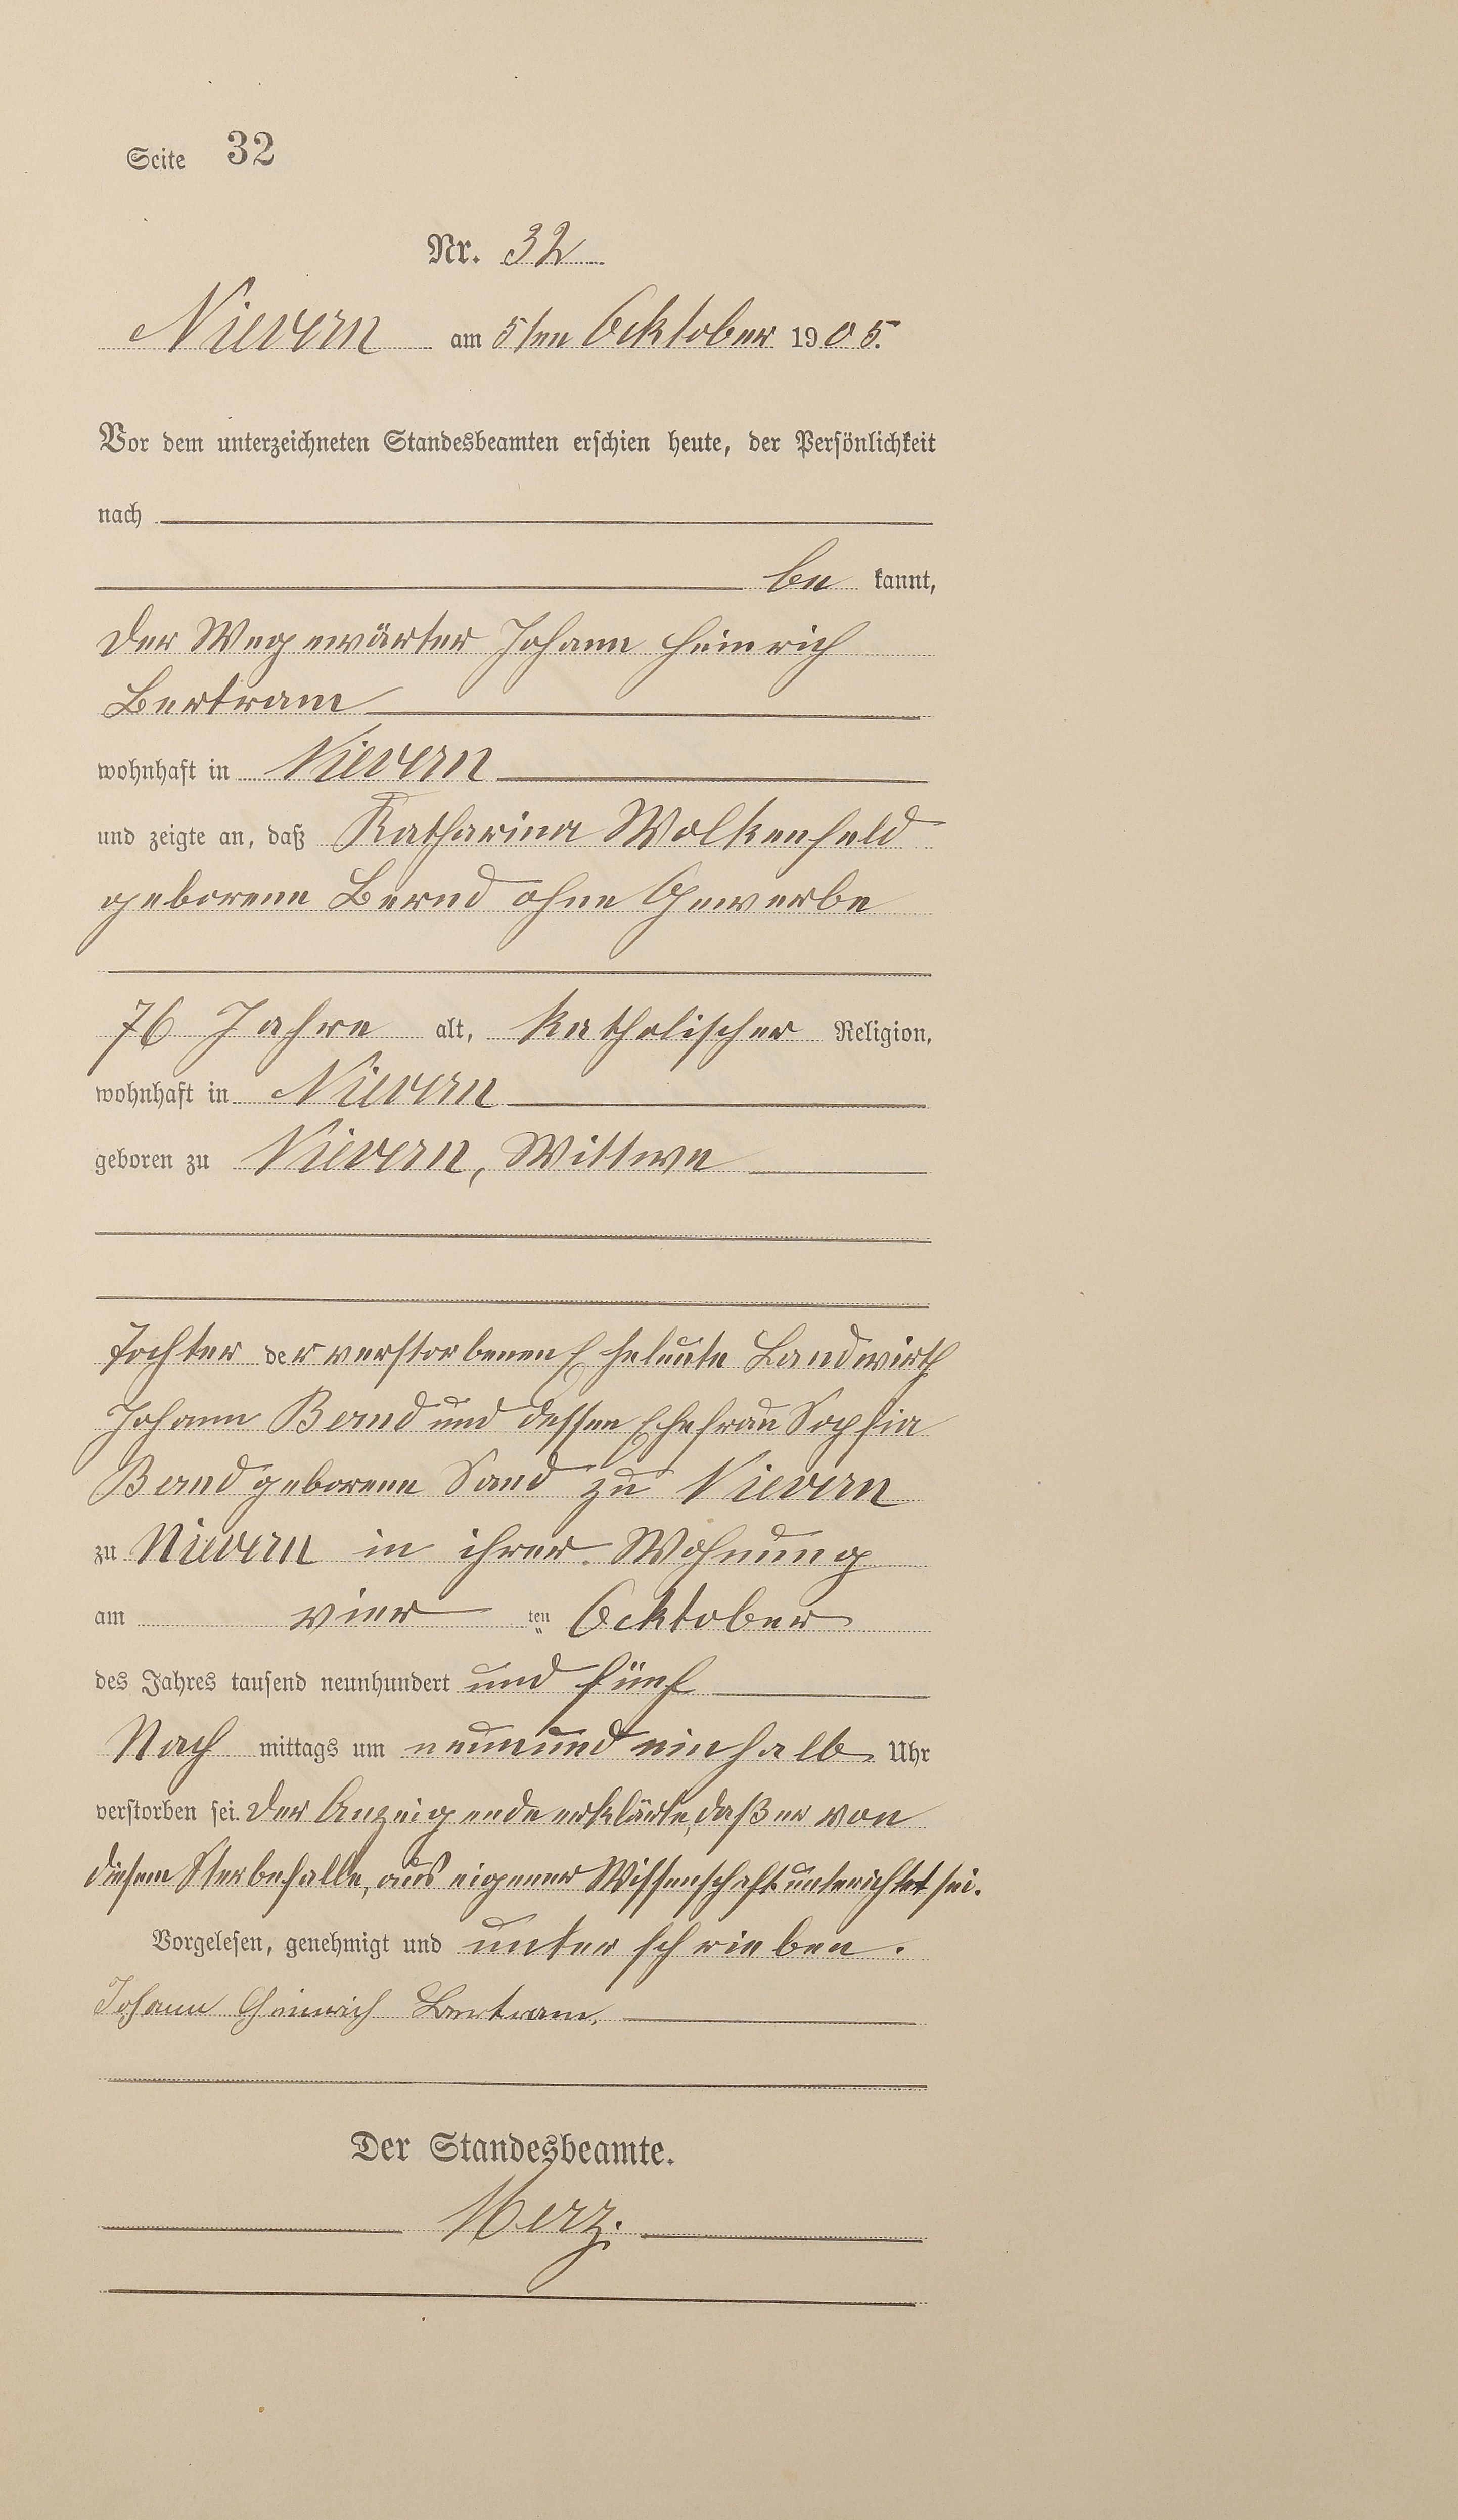 Seite 32
Nr. 32
Nievern am 5ten Ocktober 1905.
Vor dem unterzeichneten Standesbeamten erschien heute, der Persönlichkeit
nach
be kannt,
der Wegewärter Johann Heinrich
Bertram
wohnhaft in Nievern
und zeigte an, daß Katharina Wolkenfeld
geborene Bernd ohne Gewerbe
76 Jahre alt, katholischer Religion,
wohnhaft in Nievern
geboren zu Nievern, Wittwe
Tochter der verstorbenen Eheleute Landwirth
Johann Bernd und dessen Ehefrau Sophia
Bernd geborene Sand zu Nievern
zu Nievern in ihrer Wohnung
am vier ten Ocktober
des Jahres tausend neunhundert und fünf
Nach mittags um neunund einhalb Uhr
verstorben sei. Der Anzeigende erklärte, daß er von
diesem Sterbefalle, aus eigener Wissenschaft unterichtet sei.
Vorgelesen, genehmigt und unterschrieben.
Johann Heinrich Bertram.
Der Standesbeamte.
Merz.